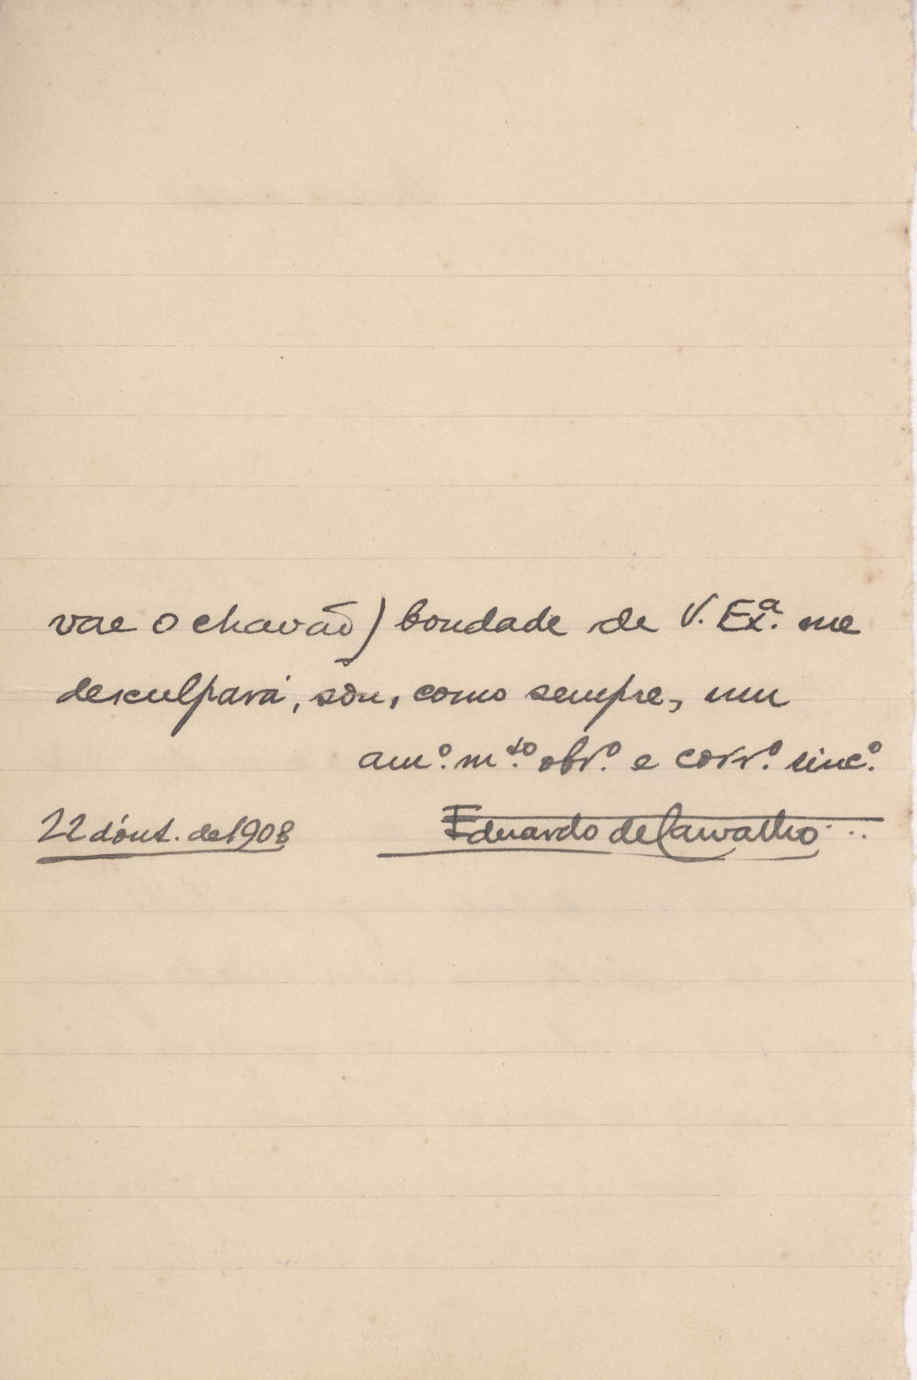 vae o chavão) bondade de V. Exª. me
desculpará, sôu, como sempre, um
amº. mᵗᵒ. obrº. e corrº. sincº.
22 d'out. de 1908 Eduardo de Carvalho...